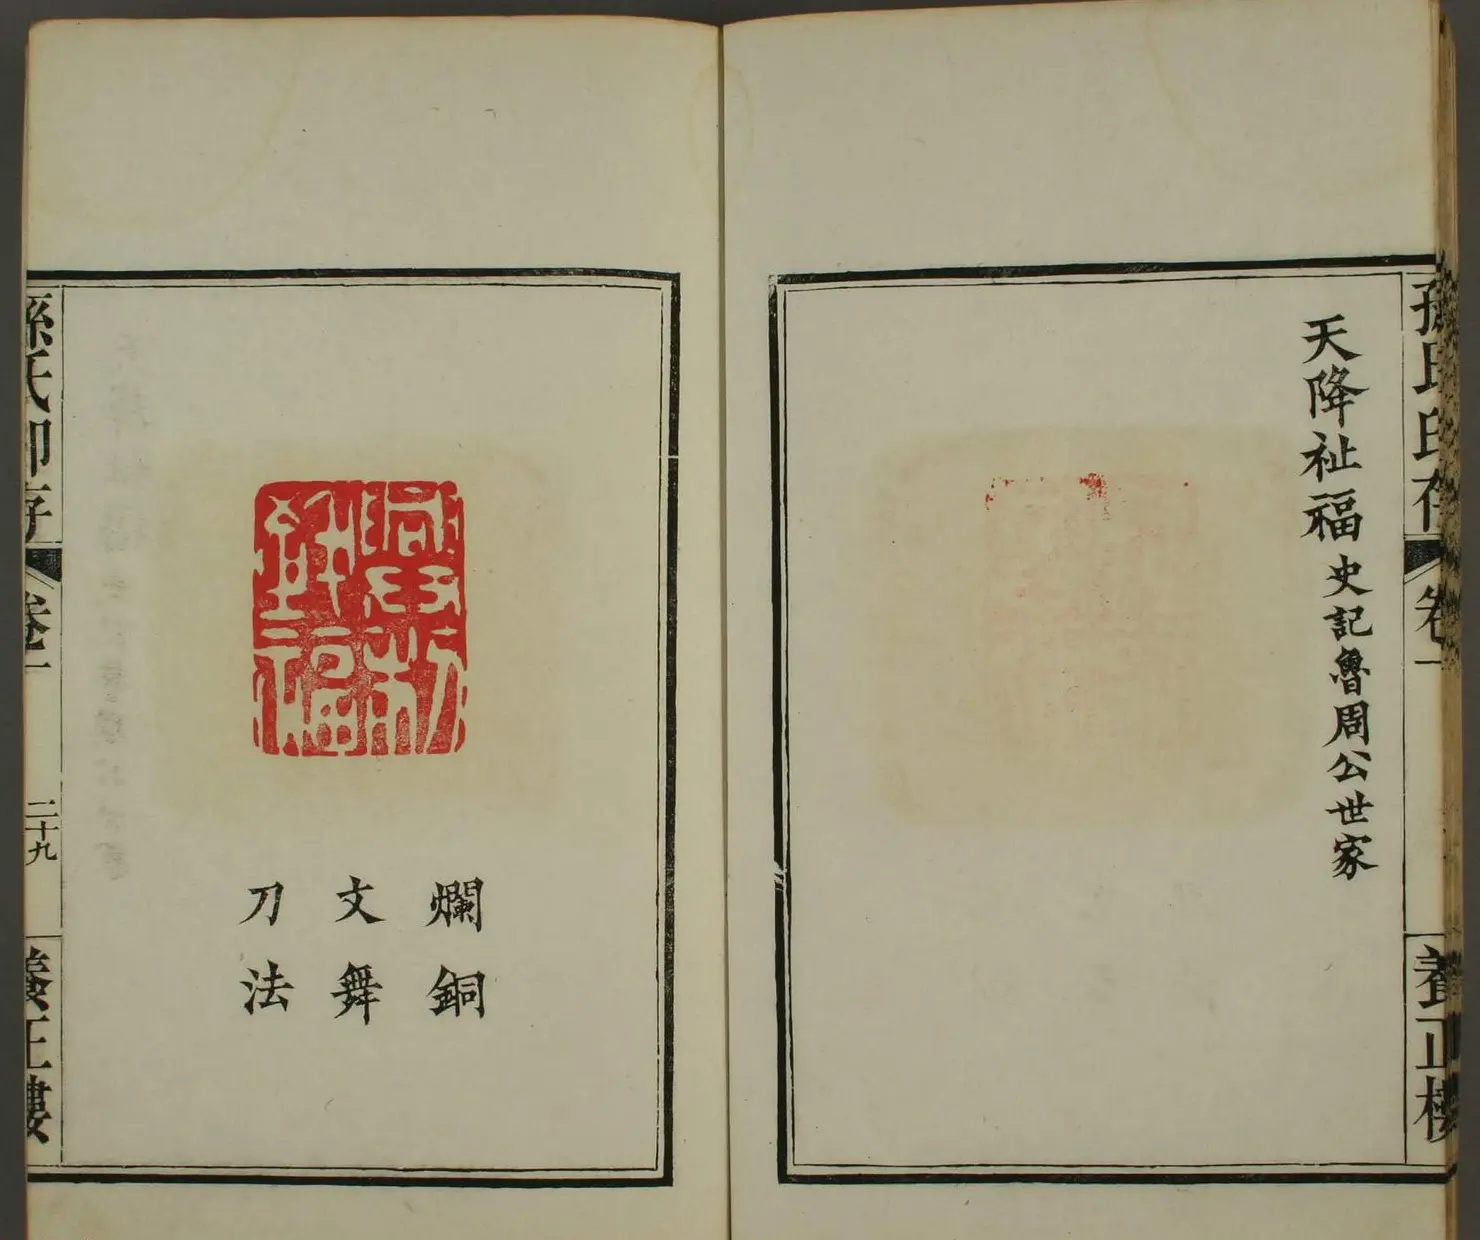 孫氏印存
卷一
養正樓
天降祉福史記魯周公世家
爛銅
文舞
刀法
孫氏印存
卷一
二十九
養正樓